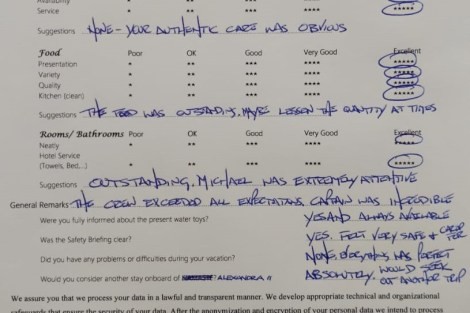 Service * ** *** **** *****
Suggestions NONE - YOUR AUTHENTIC CARE WAS OBVIOUS
Food Poor OK Good Very Good Excellent
Presentation * ** *** **** *****
Variety * ** *** **** *****
Quality * ** *** **** *****
Kitchen (clean) * ** *** **** *****
Suggestions THE FOOD WAS OUTSTANDING, MAYBE LESSON THE QUANTITY AT TIMES
Rooms/ Bathrooms Poor OK Good Very Good Excellent
Neatly * ** *** ****
Hotel Service
(Towels, Best,..) * ** *** **** *****
Suggestions OUTSTANDING, MICHAEL WAS EXTREMELY ATTENTIVE
General Remarks THE CREW EXCEEDED ALL EXPECTATIONS, CAPTAIN WAS INCREDIBLE
Were you fully informed about the present water toys? YES AND ALWAYS AVAILABLE
Was the Safety Briefing clear? YES. FELT VERY SAFE & CARED FOR
Did you have any problems or difficulties during your vacation? NONE, EVERYTHING WAS PERFECT
Would you consider another stay onboard of ALEXANDRA II ABSOLUTELY. WOULD SEEK OUT ANOTHER TRIP
We assure you that we process your data in a lawful and transparent manner. We develop appropriate technical and organizational
safeguards that ensure the security of your data. After the anonymization and encryption of your personal data we intend to process